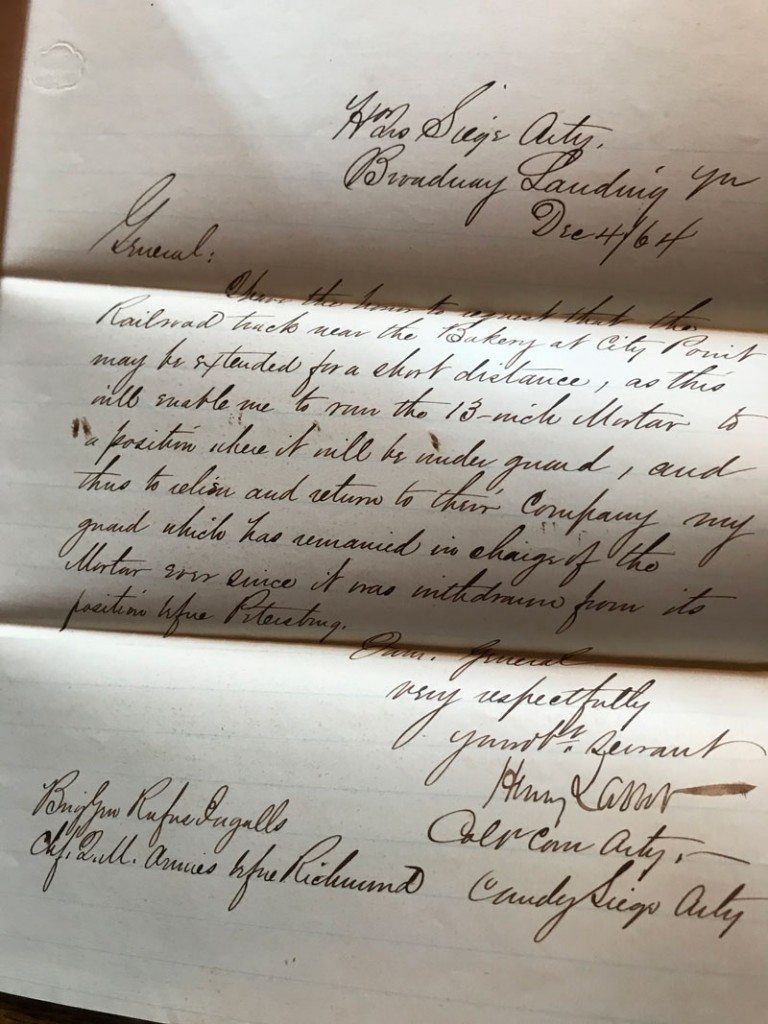 Hdqrs Siege Arty.
Broadway Landing Va
Dec 4/64
General:
I have the honor to request that the
Railroad track near the Bakery at City Point
may be extended for a short distance, as this
will enable me to run the 13-inch Mortar to
a position where it will be under guard, and
thus to relieve and return to their Company my
guard which has remained in charge of the
Mortar ever since it was withdrawn from its
position before Petersburg.
I am, General
very respectfully
your obt. servant
Henry L Abbot
Col 1st Conn Arty,
Comdg Siege Arty
Brig Gen Rufus Ingalls
Chf. Q.M. Armies before Richmond